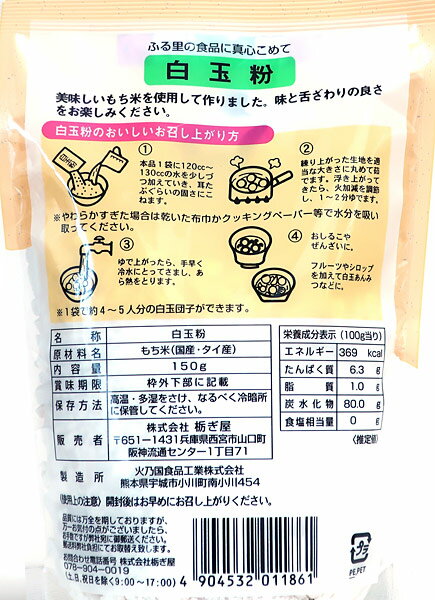 ふる里の食品に真心こめて
白玉粉
美味しいもち米を使用して作りました。味と舌ざわりの良さ
をお楽しみください。
白玉粉のおいしいお召し上がり方
①
本品1袋に120cc〜
130ccの水を少しづ
つ加えていき、耳た
ぶぐらいの固さにこ
ねます。
②
練り上がった生地を適
当な大きさに丸めて茹
でます。浮き上がって
きたら、火加減を調節
し、1〜2分ゆでます。
※やわらかすぎた場合は乾いた布巾かクッキングペーパー等で水分を吸い
取ってください。
③
ゆで上がったら、手早く
冷水にとってさまし、あ
ら熱をとります。
④
おしるこや
ぜんざいに。
フルーツやシロップ
を加えて白玉あんみ
つなどに。
※1袋で約4〜5人分の白玉団子ができます。
名称 白玉粉
原材料名 もち米(国産・タイ産)
内容量 150g
賞味期限 枠外下部に記載
保存方法 高温・多湿をさけ、なるべく冷暗所
に保管してください。
販売者 株式会社 栃ぎ屋
〒651-1431兵庫県西宮市山口町
阪神流通センター1丁目71
製造所 火乃国食品工業株式会社
熊本県宇城市小川町南小川454
栄養成分表示(100g当り)
エネルギー 369 kcal
たんぱく質 6.3 g
脂質 1.0 g
炭水化物 80.0 g
食塩相当量 0 g
(推定値)
《使用上の注意》開封後はお早めにお召し上がりください。
品質には万全を期しておりますが、
万一お気付の点がございましたら、
お手数ですが弊社宛に御郵送ください。
郵送料弊社負担にてお取替え致します。
お問合わせ電話番号 株式会社 栃ぎ屋
078-904-0019
(土、日、祝日を除く9:00〜17:00)
4 904532 011861
プラ
PE,PET